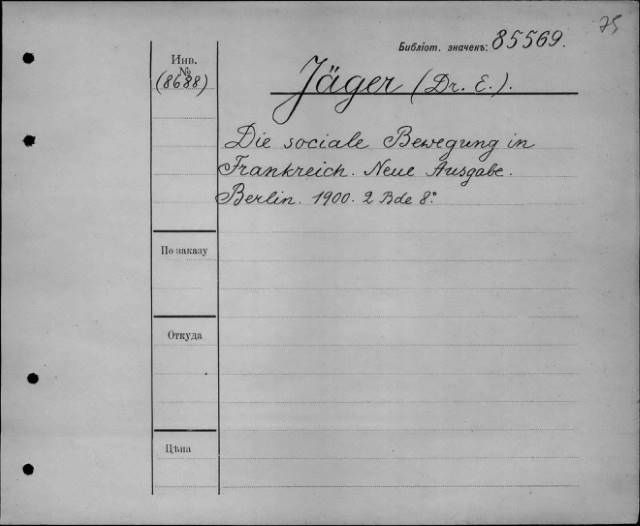 75
Библіот. значенъ: 85569.
Инв.
№
(8688)
Jäger (Dr. E.).
Die sociale Bewegung in
Frankreich. Neue Ausgabe.
Berlin. 1900. 2 Bde 8°.
По заказу
Откуда
Цѣна